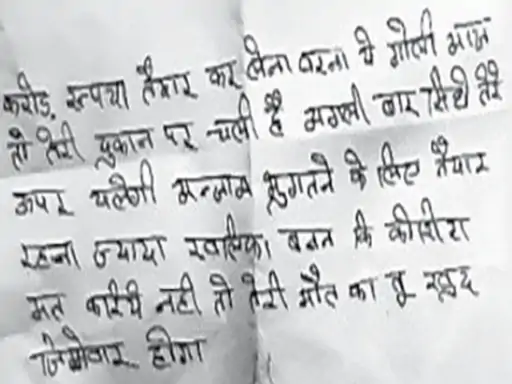 करोड़ रुपया तैयार कर लेना वरना ये गोली आज
तो तेरी दुकान पर चली है अगली बार सिधे तेरे
ऊपर चलेगी अन्जाम भुगतने के लिए तैयार
रहना ज्यादा खलिफा बनन कि कोशिश
मत करिये नही तो तेरी मौत का तू खुद
जिम्मेवार होगा